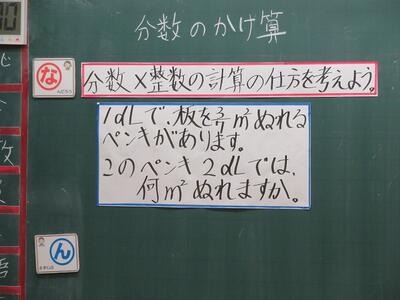 分数のかけ算
な
分数×整数の計算の仕方を考えよう。
1dLで、板を3/7m²ぬれる
ペンキがあります。
このペンキ2dLでは、
何m²ぬれますか。
ん